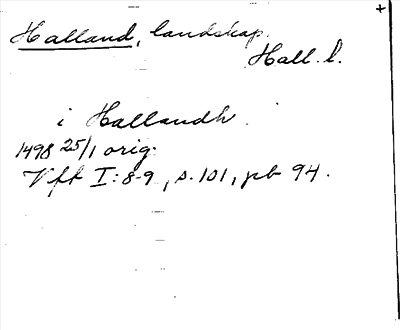 +
Halland, landskap.
Hall. l.
i Hallandh.
1498 25/1 orig.
Vfft I:8-9, s. 101, pb 94.